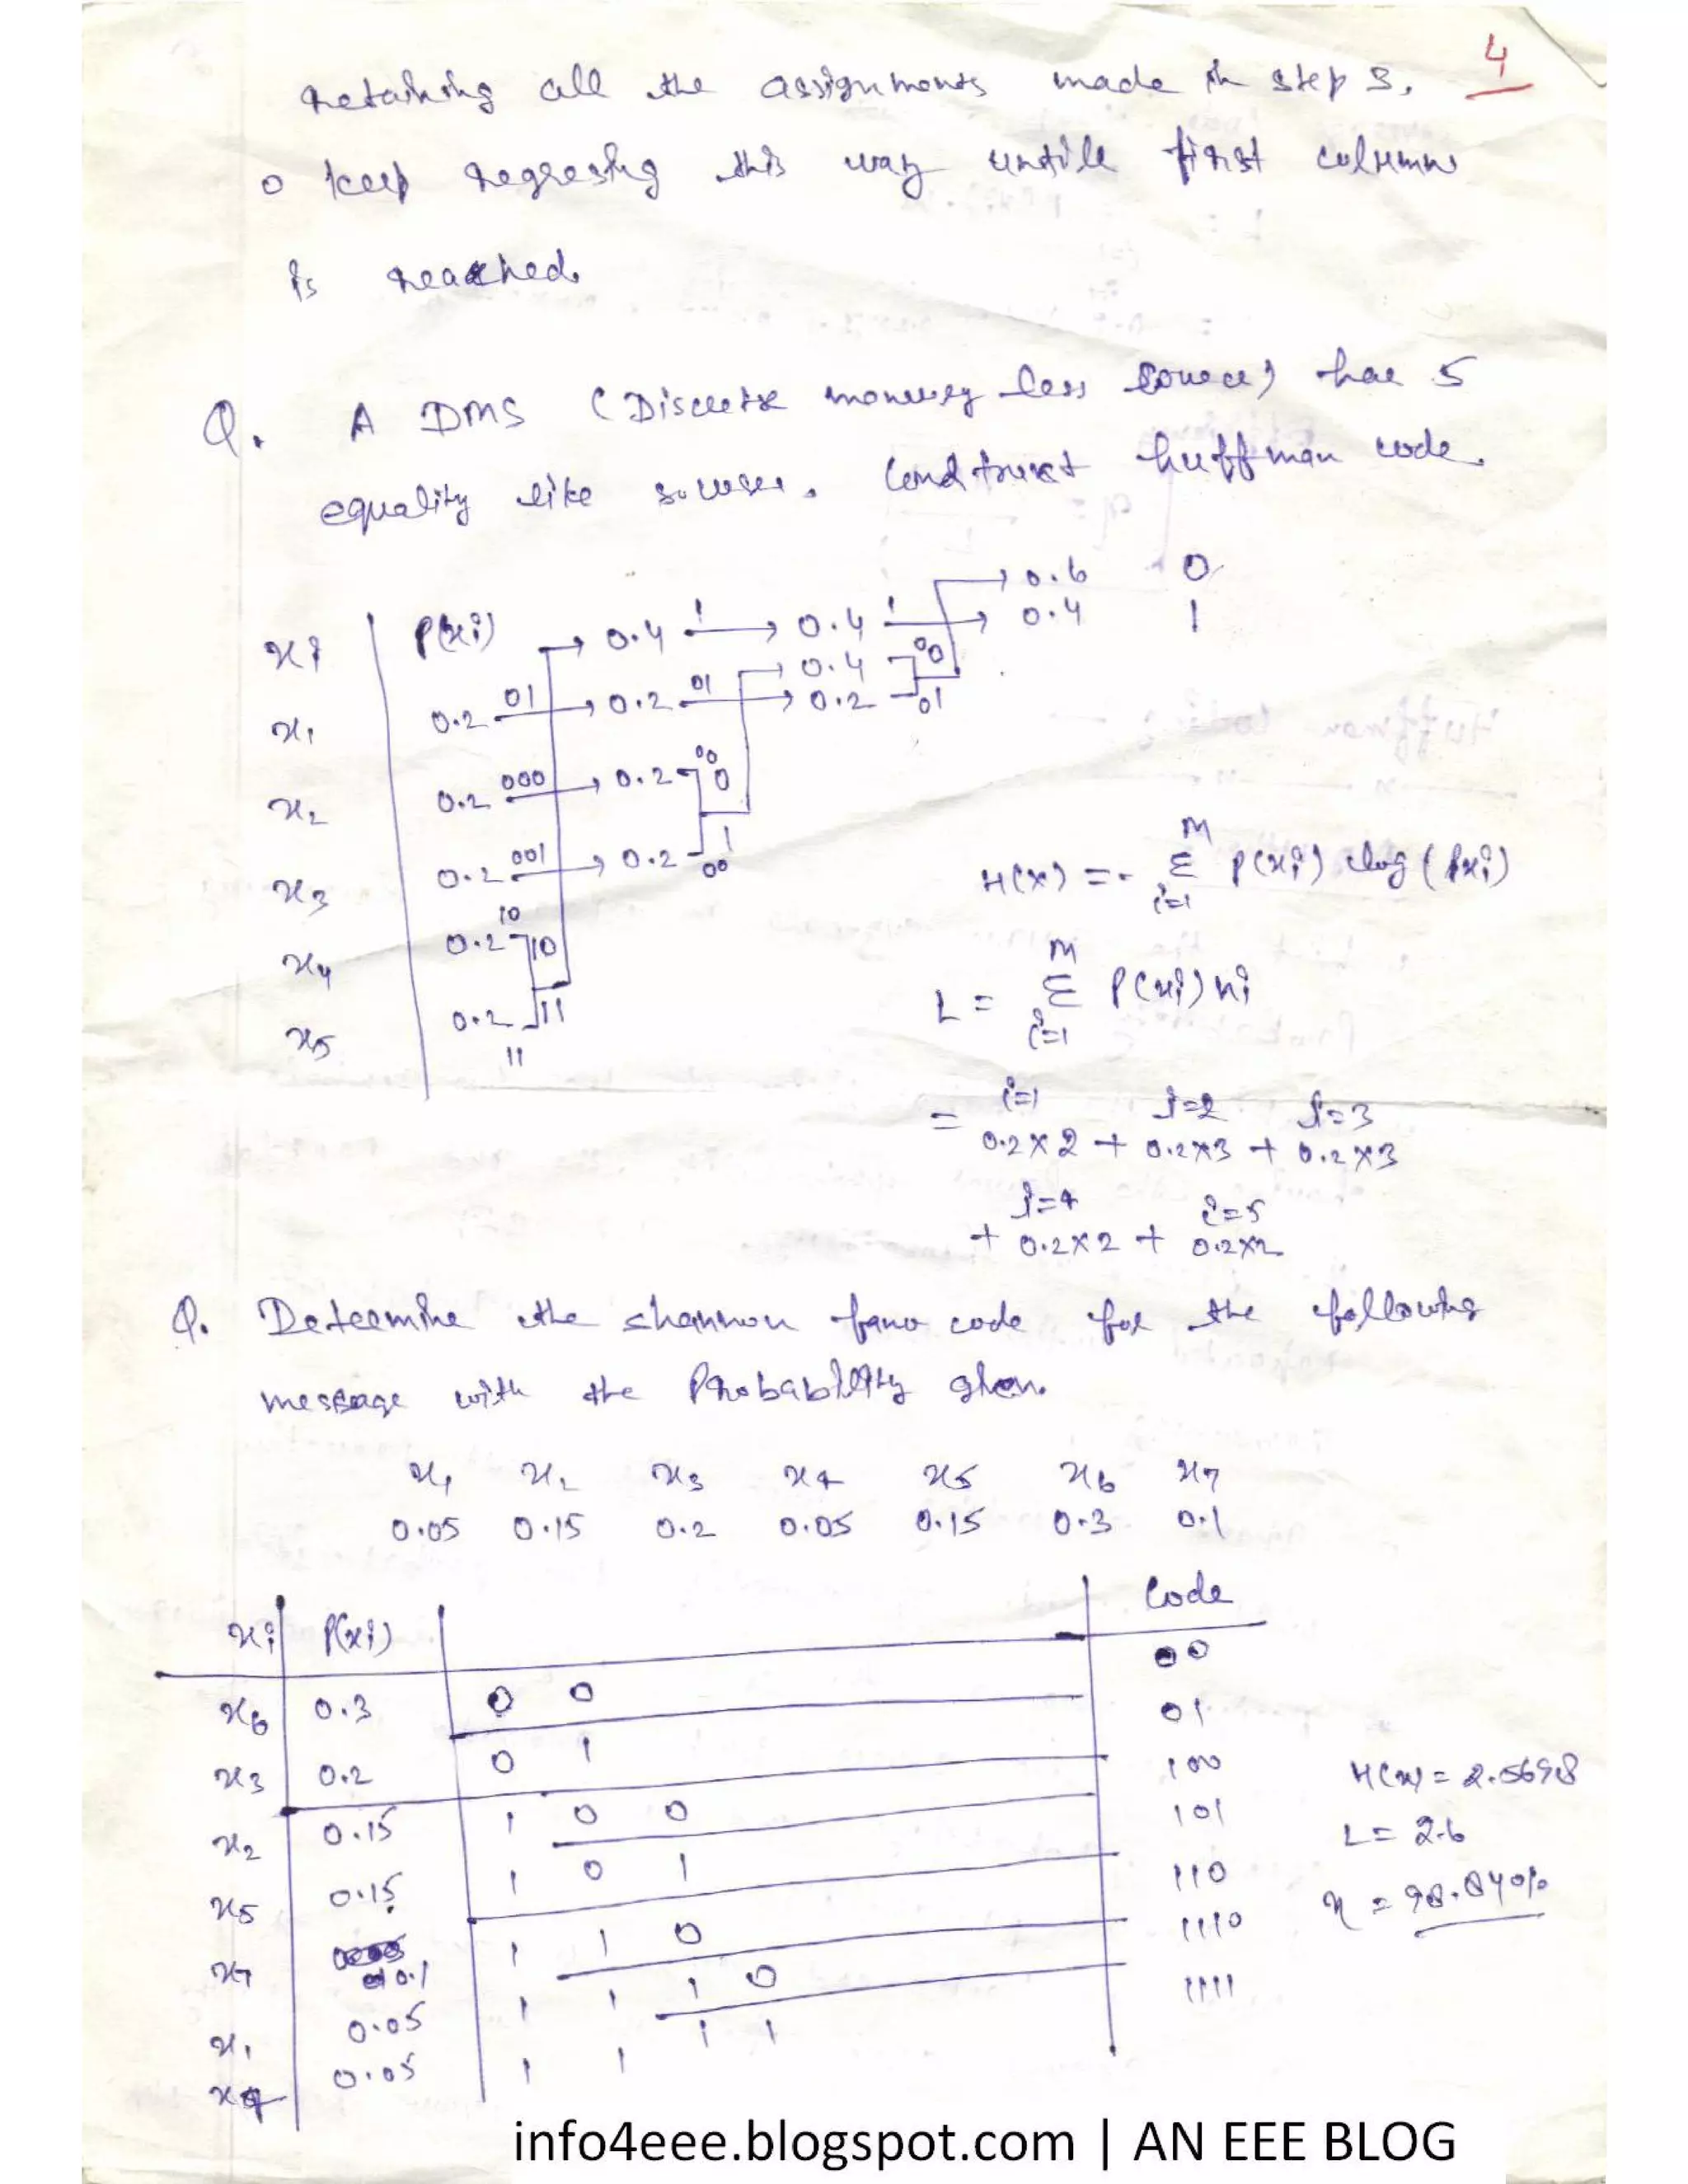 4
retaining all the assignments made in step 3.
o keep regressing this way untill first column
is reached.
Q. A DMS (Discrete memory less source) has 5
equality like sources. Construct huffman code.
xi P(xi) 0.4 1 0.4 1 0.6 0
0.4 1
0.4 00
x1 0.2 01 0.2 01 0.2 01
x2 0.2 000 0.2 00 0
x3 0.2 001 0.2 1 00
x4 0.2 10 10
x5 0.2 11 11
H(x) = - M Σ i=1 P(xi) log (Pxi)
L = M Σ i=1 P(xi) ni
i=1 i=2 i=3
= 0.2 x 2 + 0.2x3 + 0.2x3
i=4 i=5
+ 0.2x2 + 0.2x2
Q. Determine the shannon fano code for the following
message with the Probability given.
x1 x2 x3 x4 x5 x6 x7
0.05 0.15 0.2 0.05 0.15 0.3 0.1
xi P(xi) Code
x6 0.3 0 0 00
x3 0.2 0 1 01
x2 0.15 1 0 0 100
x5 0.15 1 0 1 101
x7 0.1 1 1 0 110
x1 0.05 1 1 1 0 1110
x4 0.05 1 1 1 1 1111
H(x) = 2.5698
L = 2.6
η = 98.84%
info4eee.blogspot.com | AN EEE BLOG